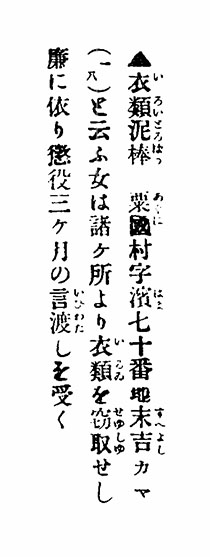 ▲衣類泥棒　粟國村字濱七十番地末吉カマ
(一八)と云ふ女は諸ケ所より衣類を窃取せし
廉に依り懲役三ケ月の言渡しを受く